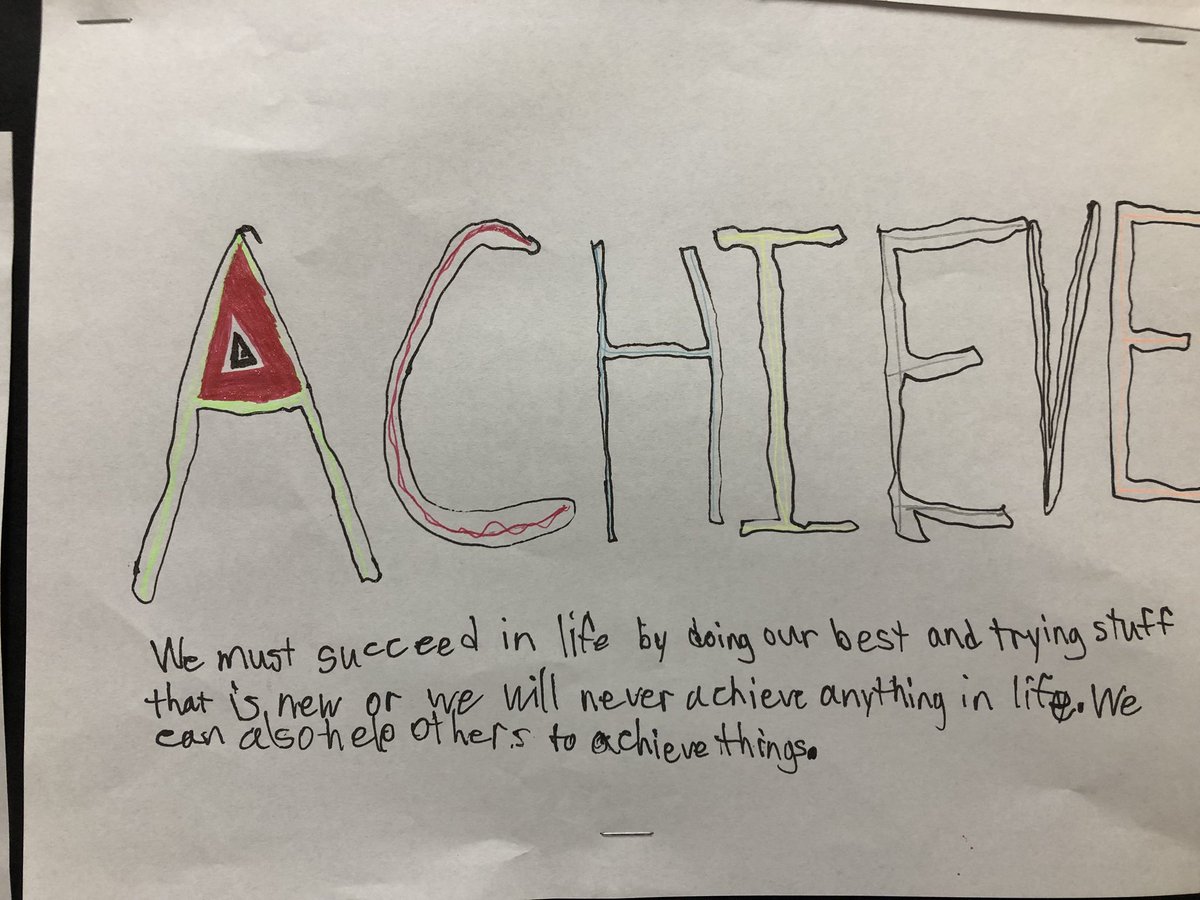 ACHIEVE
We must succeed in life by doing our best and trying stuff
that is new or we will never achieve anything in life. We
can also help others to achieve things.